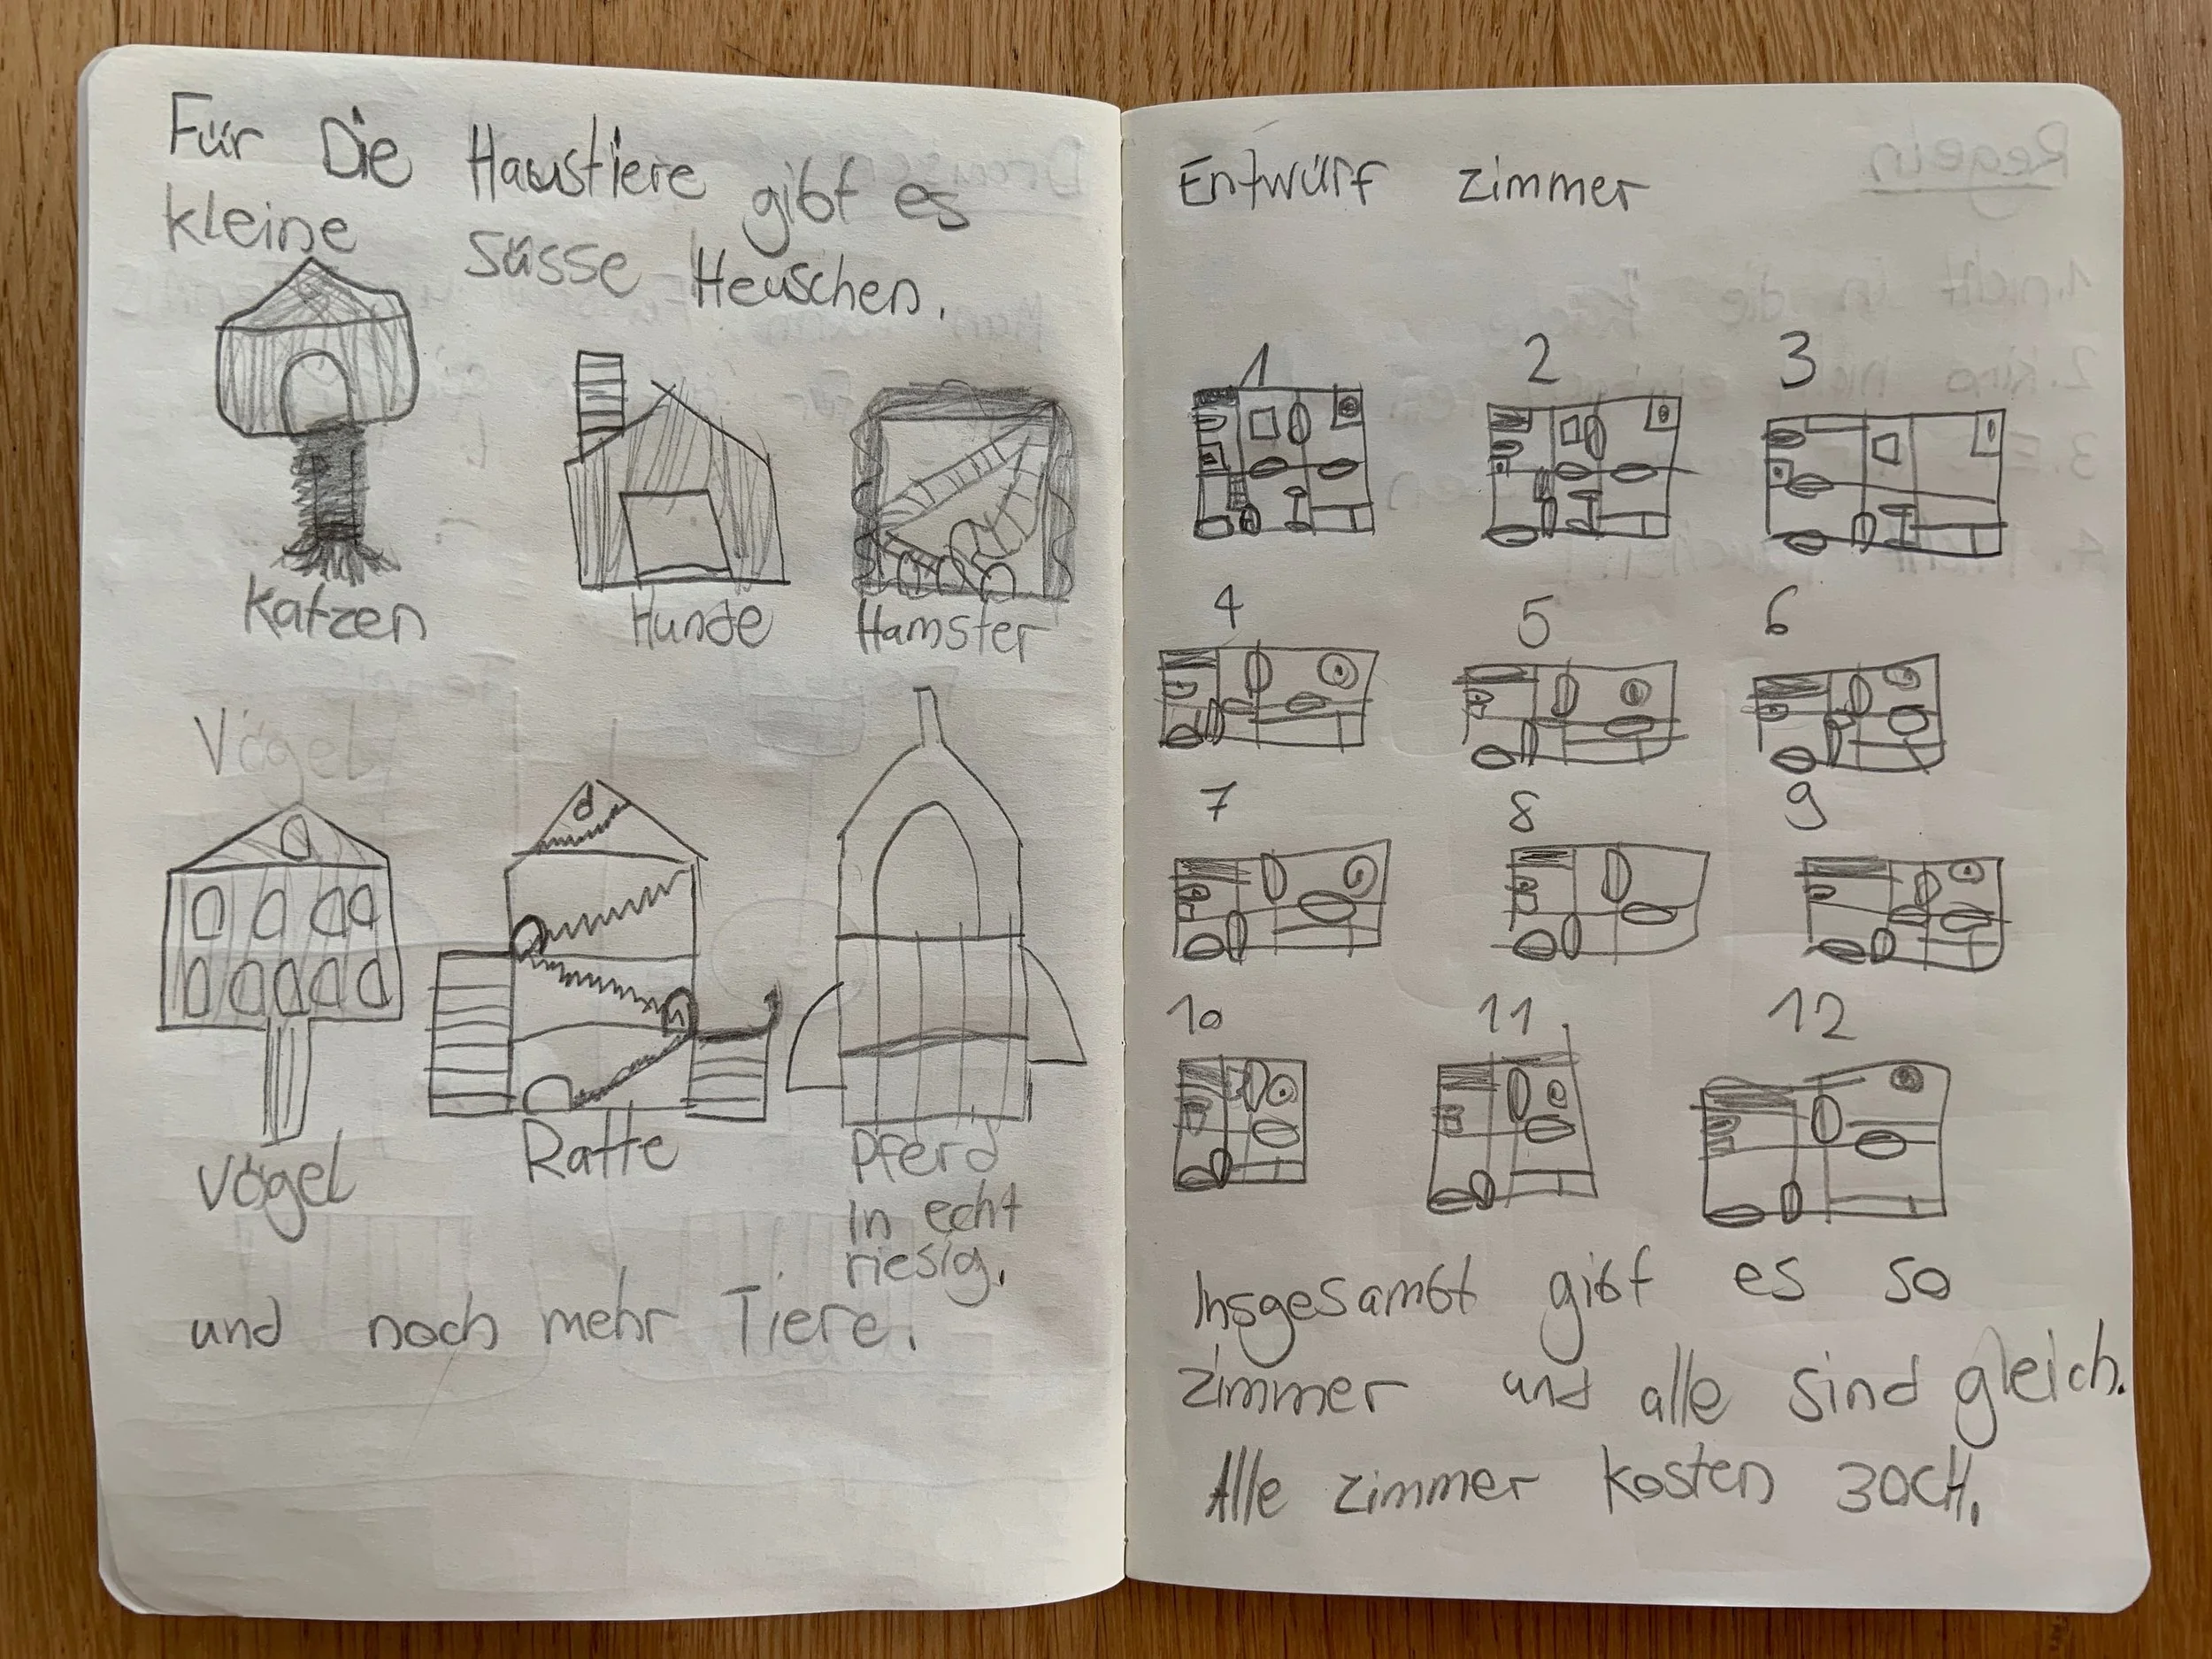 Für Die Haustiere gibt es
kleine süsse Heuschen.
Katzen
Hunde
Hamster
Vögel
Vögel
Ratte
Pferd
in echt
riesig.
und noch mehr Tiere.
Entwürf zimmer
1
2
3
4
5
6
7
8
9
10
11
12
Insgesambt gibt es so
zimmer und alle sind gleich.
Alle zimmer kosten 30CH.
Regeln
1. nicht in die
2. Kino
3.
4.